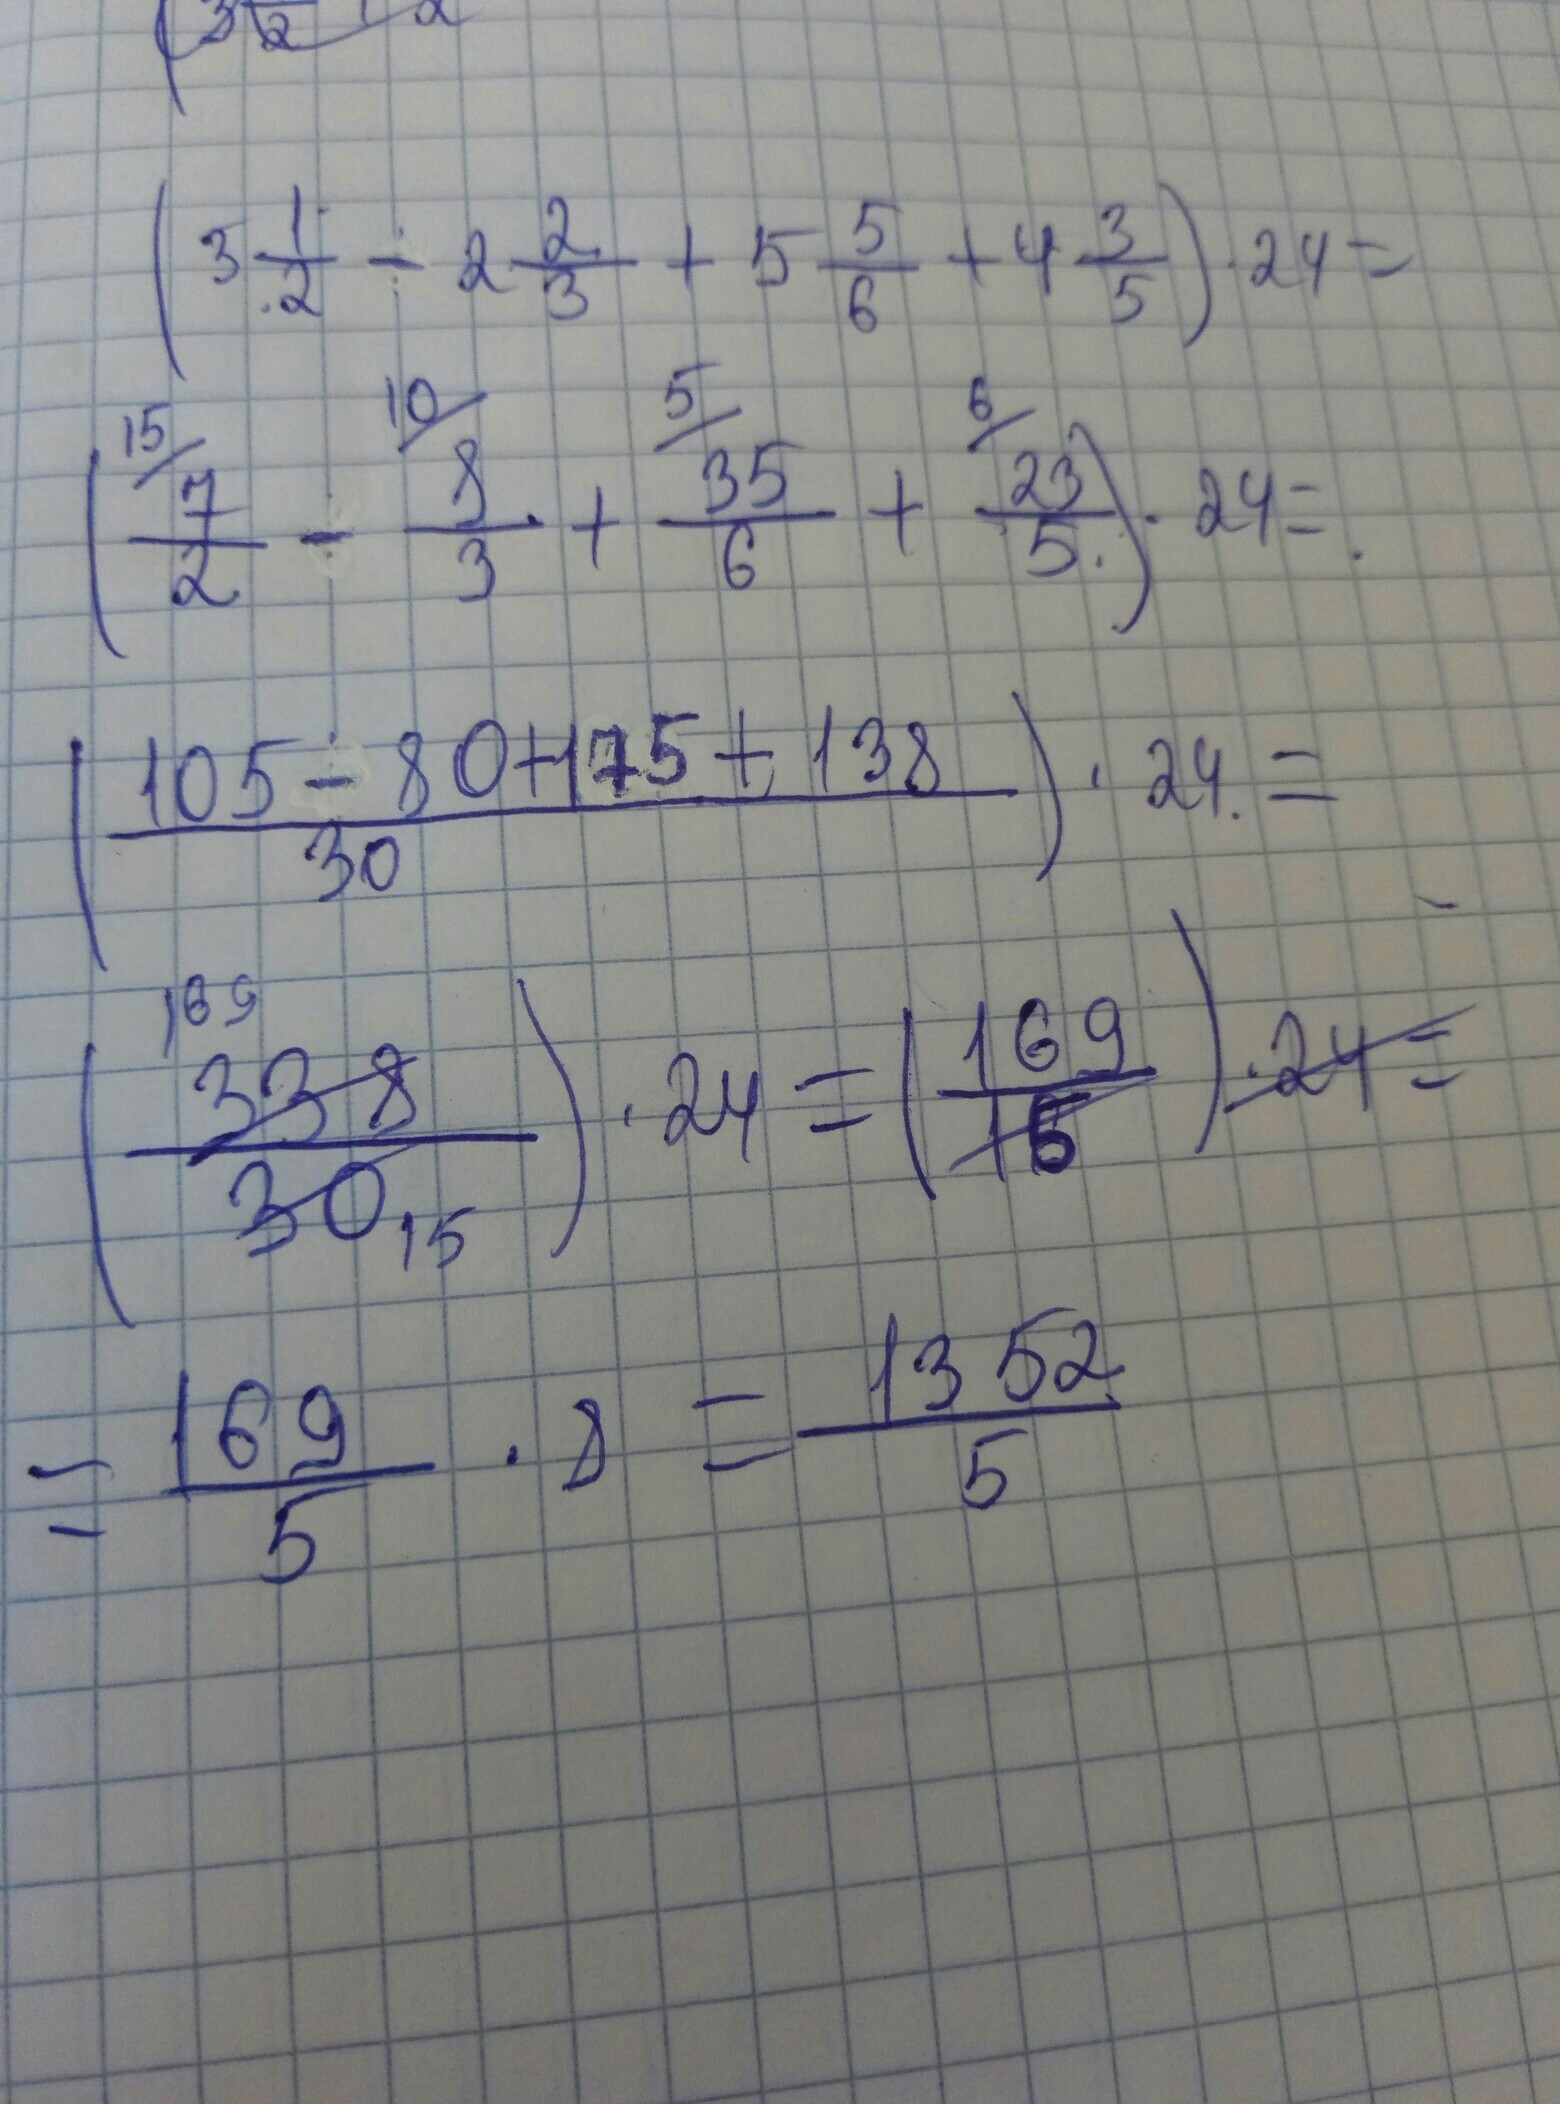 (3 1/2 - 2 2/3 + 5 5/6 + 4 3/5) · 24 =
(15/ 7/2 - 10/ 8/3 + 5/ 35/6 + 6/ 23/5) · 24 =
((105 - 80 + 175 + 138)/30) · 24 =
(169 338/30 15) · 24 = (169/15) · 24 =
= 169/5 · 8 = 1352/5